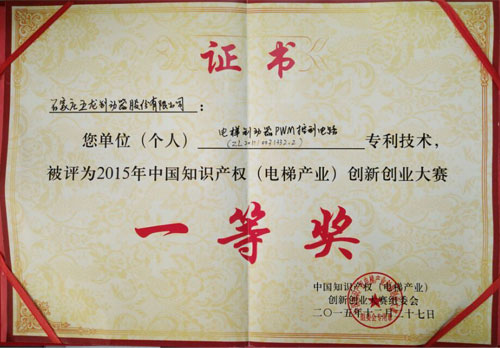 证书
石家庄五龙制动器股份有限公司：
您单位（个人） 电梯制动器PWM控制电路 专利技术，
被评为2015年中国知识产权（电梯产业）创新创业大赛
一等奖
中国知识产权（电梯产业）
创新创业大赛组委会
二〇一五年十二月二十七日